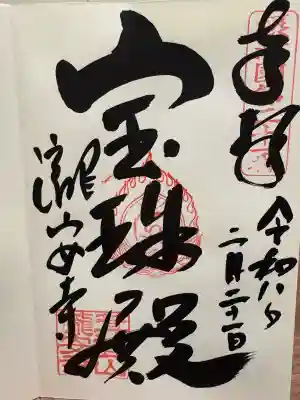 奉拝
令和八年
二月二十一日
宝珠殿
瀧安寺